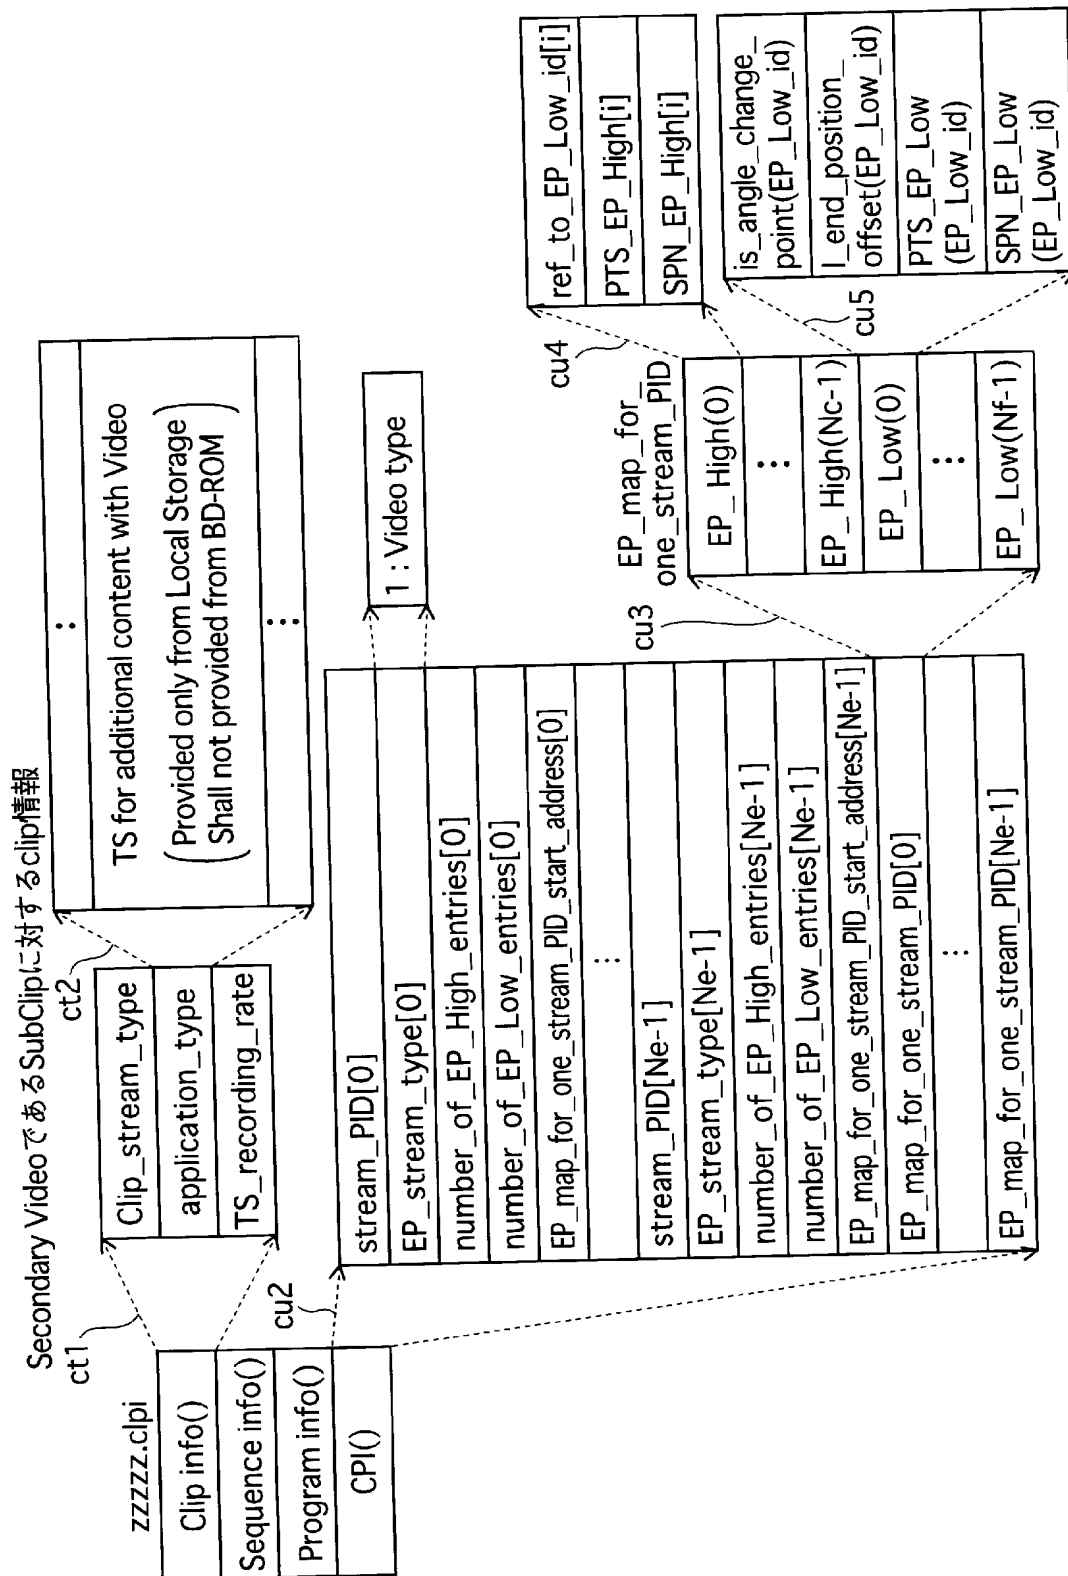 Secondary VideoであるSubClipに対するclip情報
zzzzz.clpi
Clip info()
Sequence info()
Program info()
CPI()
ct1
Clip_stream_type
application_type
TS_recording_rate
ct2
⋮
TS for additional content with Video
(Provided only from Local Storage
Shall not provided from BD-ROM)
⋮
cu2
stream_PID[0]
EP_stream_type[0]
number_of_EP_High_entries[0]
number_of_EP_Low_entries[0]
EP_map_for_one_stream_PID_start_address[0]
⋮
stream_PID[Ne-1]
EP_stream_type[Ne-1]
number_of_EP_High_entries[Ne-1]
number_of_EP_Low_entries[Ne-1]
EP_map_for_one_stream_PID_start_address[Ne-1]
EP_map_for_one_stream_PID[0]
⋮
EP_map_for_one_stream_PID[Ne-1]
1 : Video type
cu3
EP_map_for_
one_stream_PID
EP_High(0)
⋮
EP_High(Nc-1)
EP_Low(0)
⋮
EP_Low(Nf-1)
cu4
ref_to_EP_Low_id[i]
PTS_EP_High[i]
SPN_EP_High[i]
cu5
is_angle_change_
point(EP_Low_id)
I_end_position_
offset(EP_Low_id)
PTS_EP_Low
(EP_Low_id)
SPN_EP_Low
(EP_Low_id)